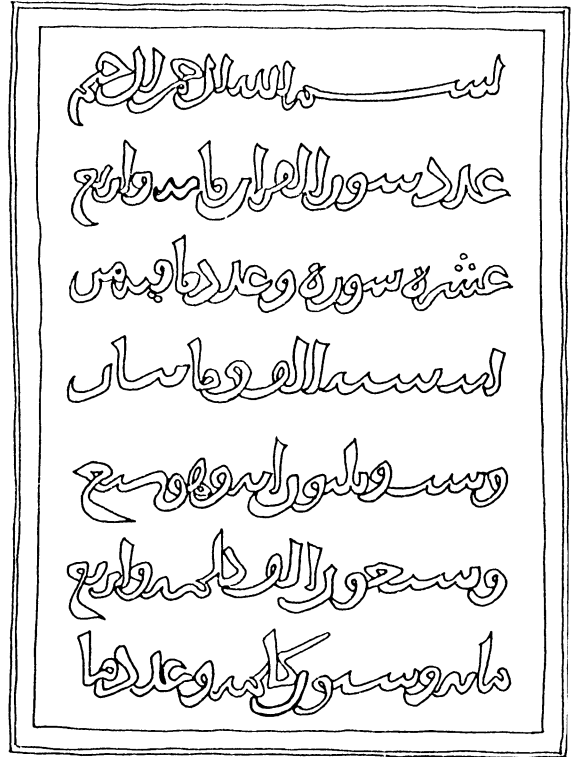 بسم الله الرحمن الرحيم
عدد سور القران مايه واربع
عشرة سورة وعدد ما فيه من
ايه سته الف ومايتان
وست وثلثون ايه وهو سبع
وسبعون الف كلمه واربع
مايه وستون كلمه وعدد ما